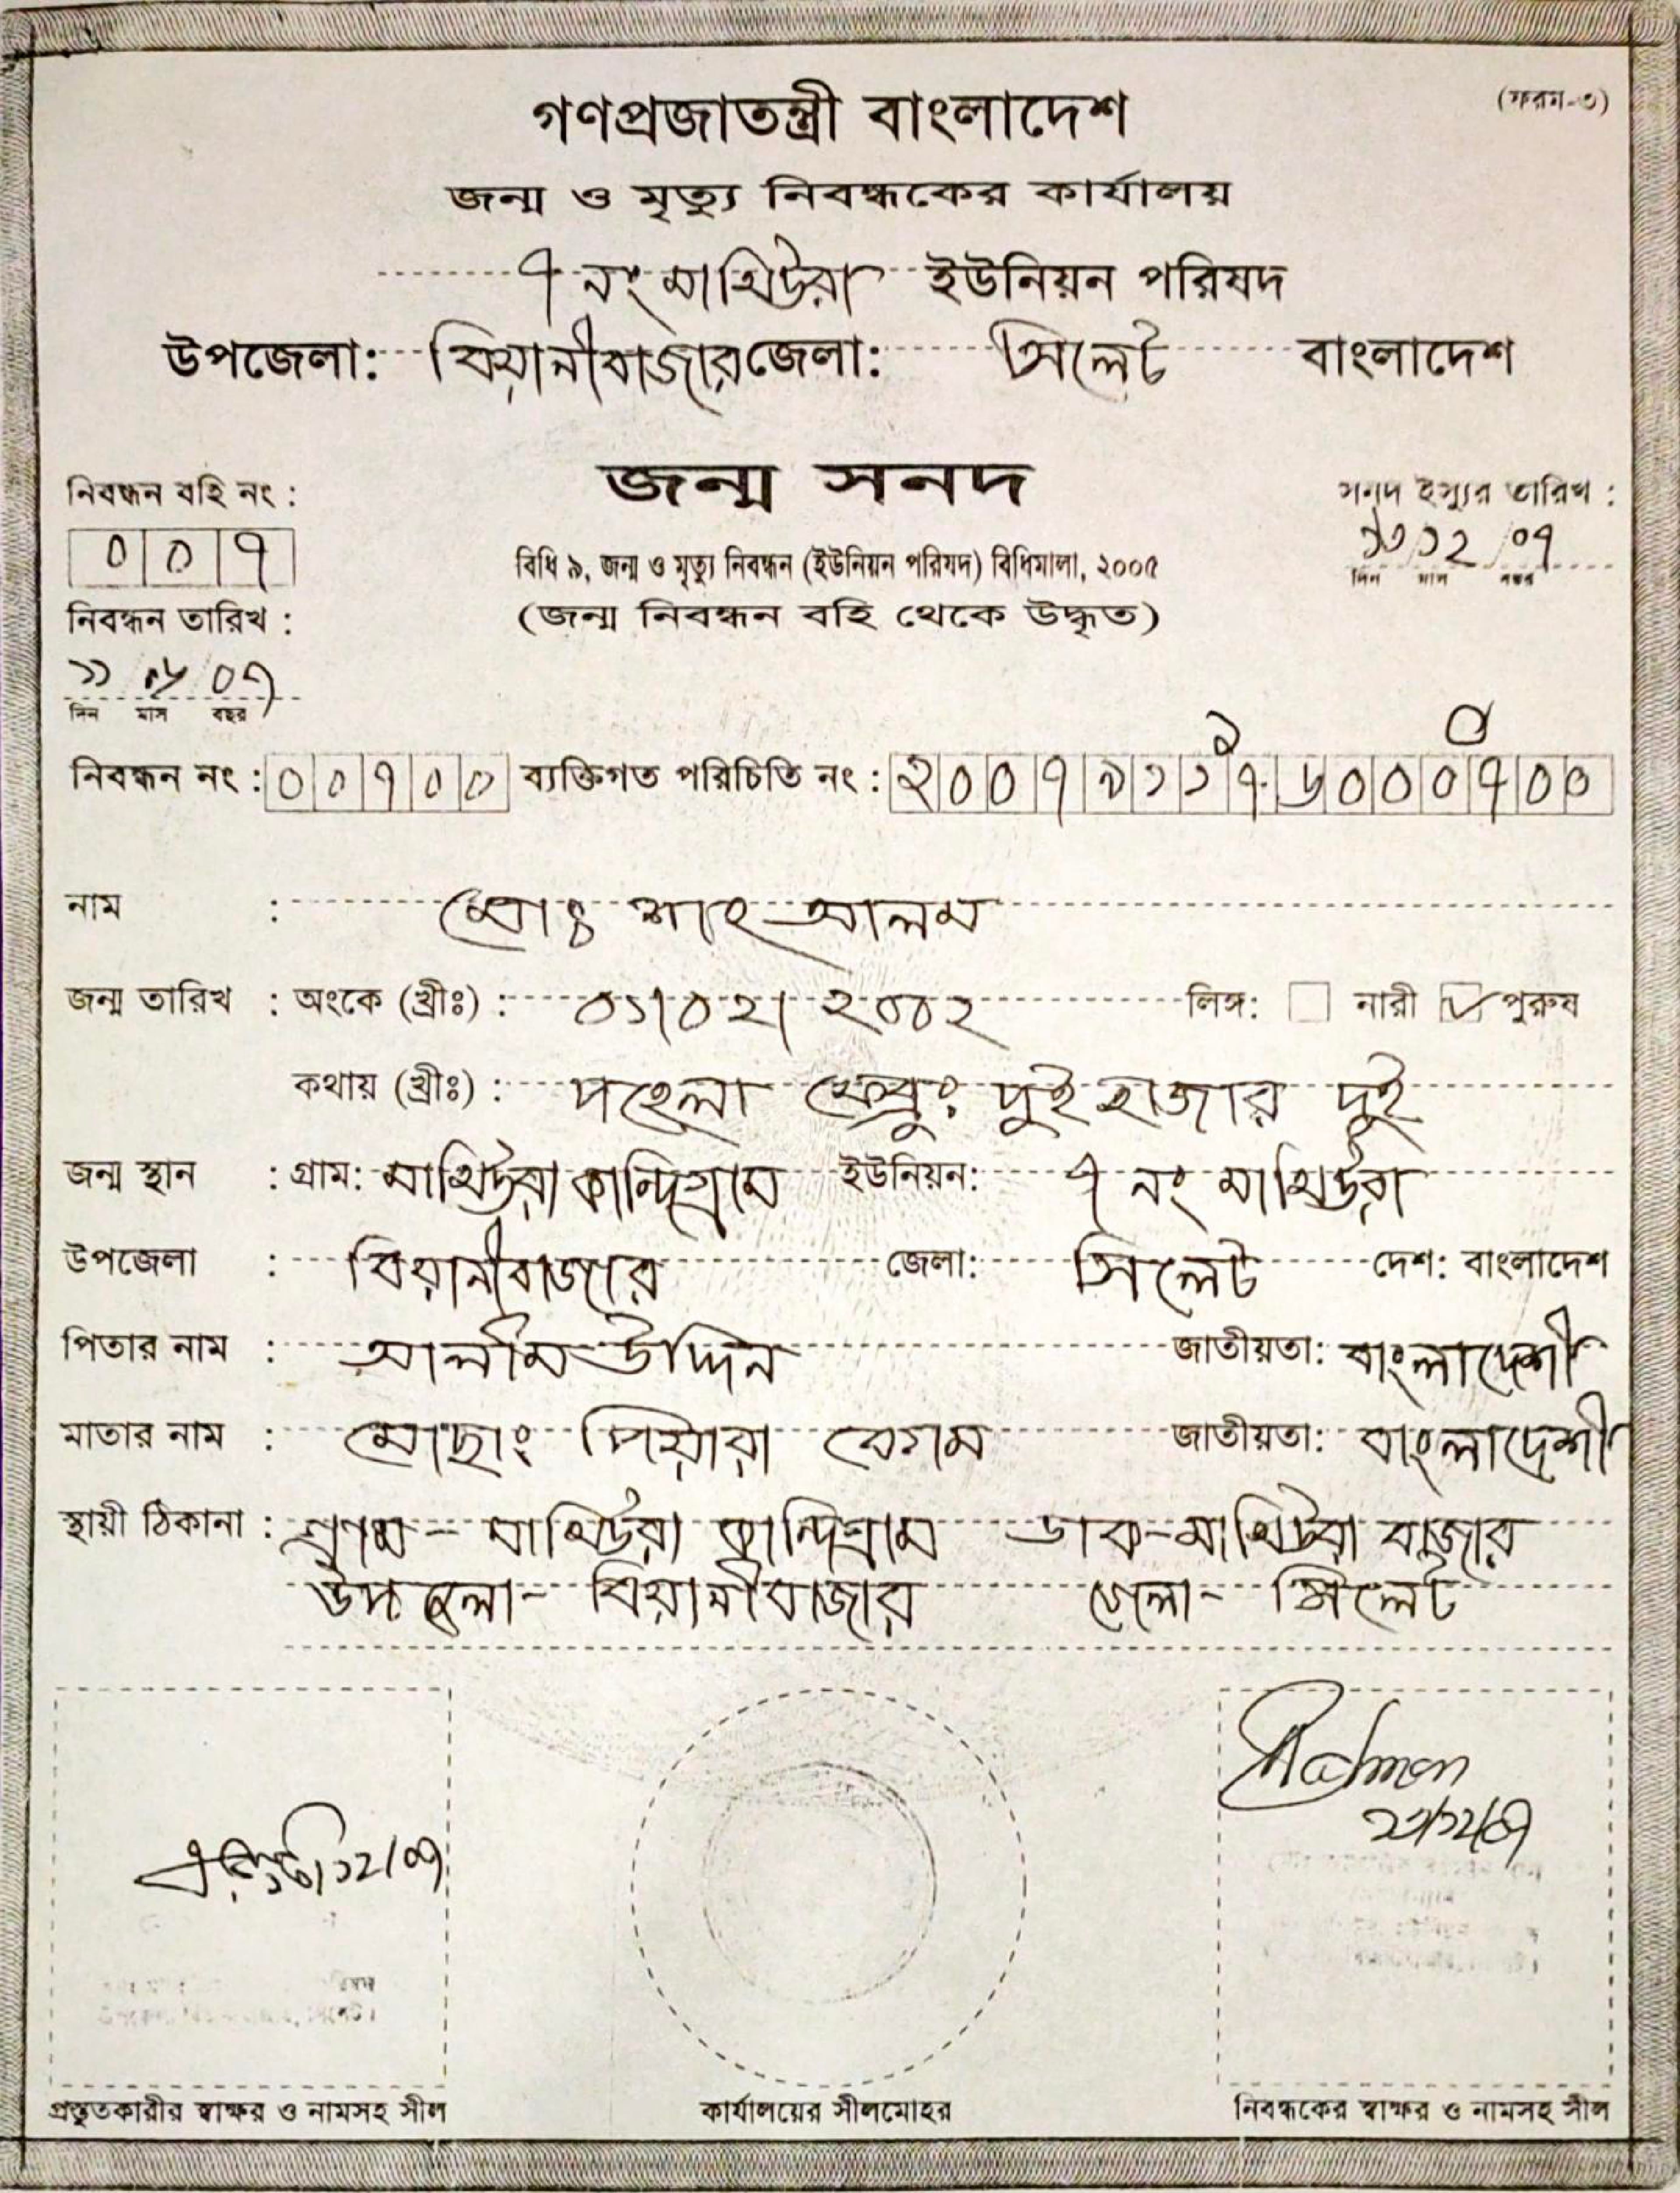 (ফরম-৩)
গণপ্রজাতন্ত্রী বাংলাদেশ
জন্ম ও মৃত্যু নিবন্ধকের কার্যালয়
৭ নং মাথিউরা ইউনিয়ন পরিষদ
উপজেলা: বিয়ানীবাজার জেলা: সিলেট বাংলাদেশ
জন্ম সনদ
নিবন্ধন বহি নং :
০০৭
সনদ ইস্যুর তারিখ :
১২ /০৭
দিন মাস বছর
বিধি ৯, জন্ম ও মৃত্যু নিবন্ধন (ইউনিয়ন পরিষদ) বিধিমালা, ২০০৫
(জন্ম নিবন্ধন বহি থেকে উদ্ধৃত)
নিবন্ধন তারিখ :
১১ /০৭
দিন মাস বছর
১ ০
নিবন্ধন নং : ০০৭০০ ব্যক্তিগত পরিচিতি নং : ২০০৭৯১১৭৬০০০৭০০
নাম : মোঃ শাহ আলম
জন্ম তারিখ : অংকে (খ্রীঃ) : ০১/০২/২০০২ লিঙ্গ: নারী পুরুষ
কথায় (খ্রীঃ) : পহেলা ফেব্রু: দুই হাজার দুই
জন্ম স্থান : গ্রাম: মাথিউরা কান্দিগ্রাম ইউনিয়ন: ৭ নং মাথিউরা
উপজেলা : বিয়ানীবাজার জেলা: সিলেট দেশ: বাংলাদেশ
পিতার নাম : আলীম উদ্দিন জাতীয়তা: বাংলাদেশী
মাতার নাম : মোছাং পিয়ারা বেগম জাতীয়তা: বাংলাদেশী
স্থায়ী ঠিকানা : গ্রাম - মাথিউরা কান্দিগ্রাম ডাক-মাথিউরা বাজার
উপজেলা- বিয়ানীবাজার জেলা- সিলেট
১২/০৭
প্রস্তুতকারীর স্বাক্ষর ও নামসহ সীল
কার্যালয়ের সীলমোহর
নিবন্ধকের স্বাক্ষর ও নামসহ সীল